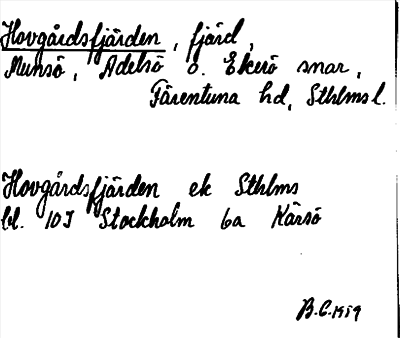 Hovgårdsfjärden, fjärd,
Munsö, Adelsö o. Ekerö snar,
Färentuna hd, Sthlms l.
Hovgårdsfjärden ek Sthlms
bl. 10I Stockholm 6a Kärsö
B.C.